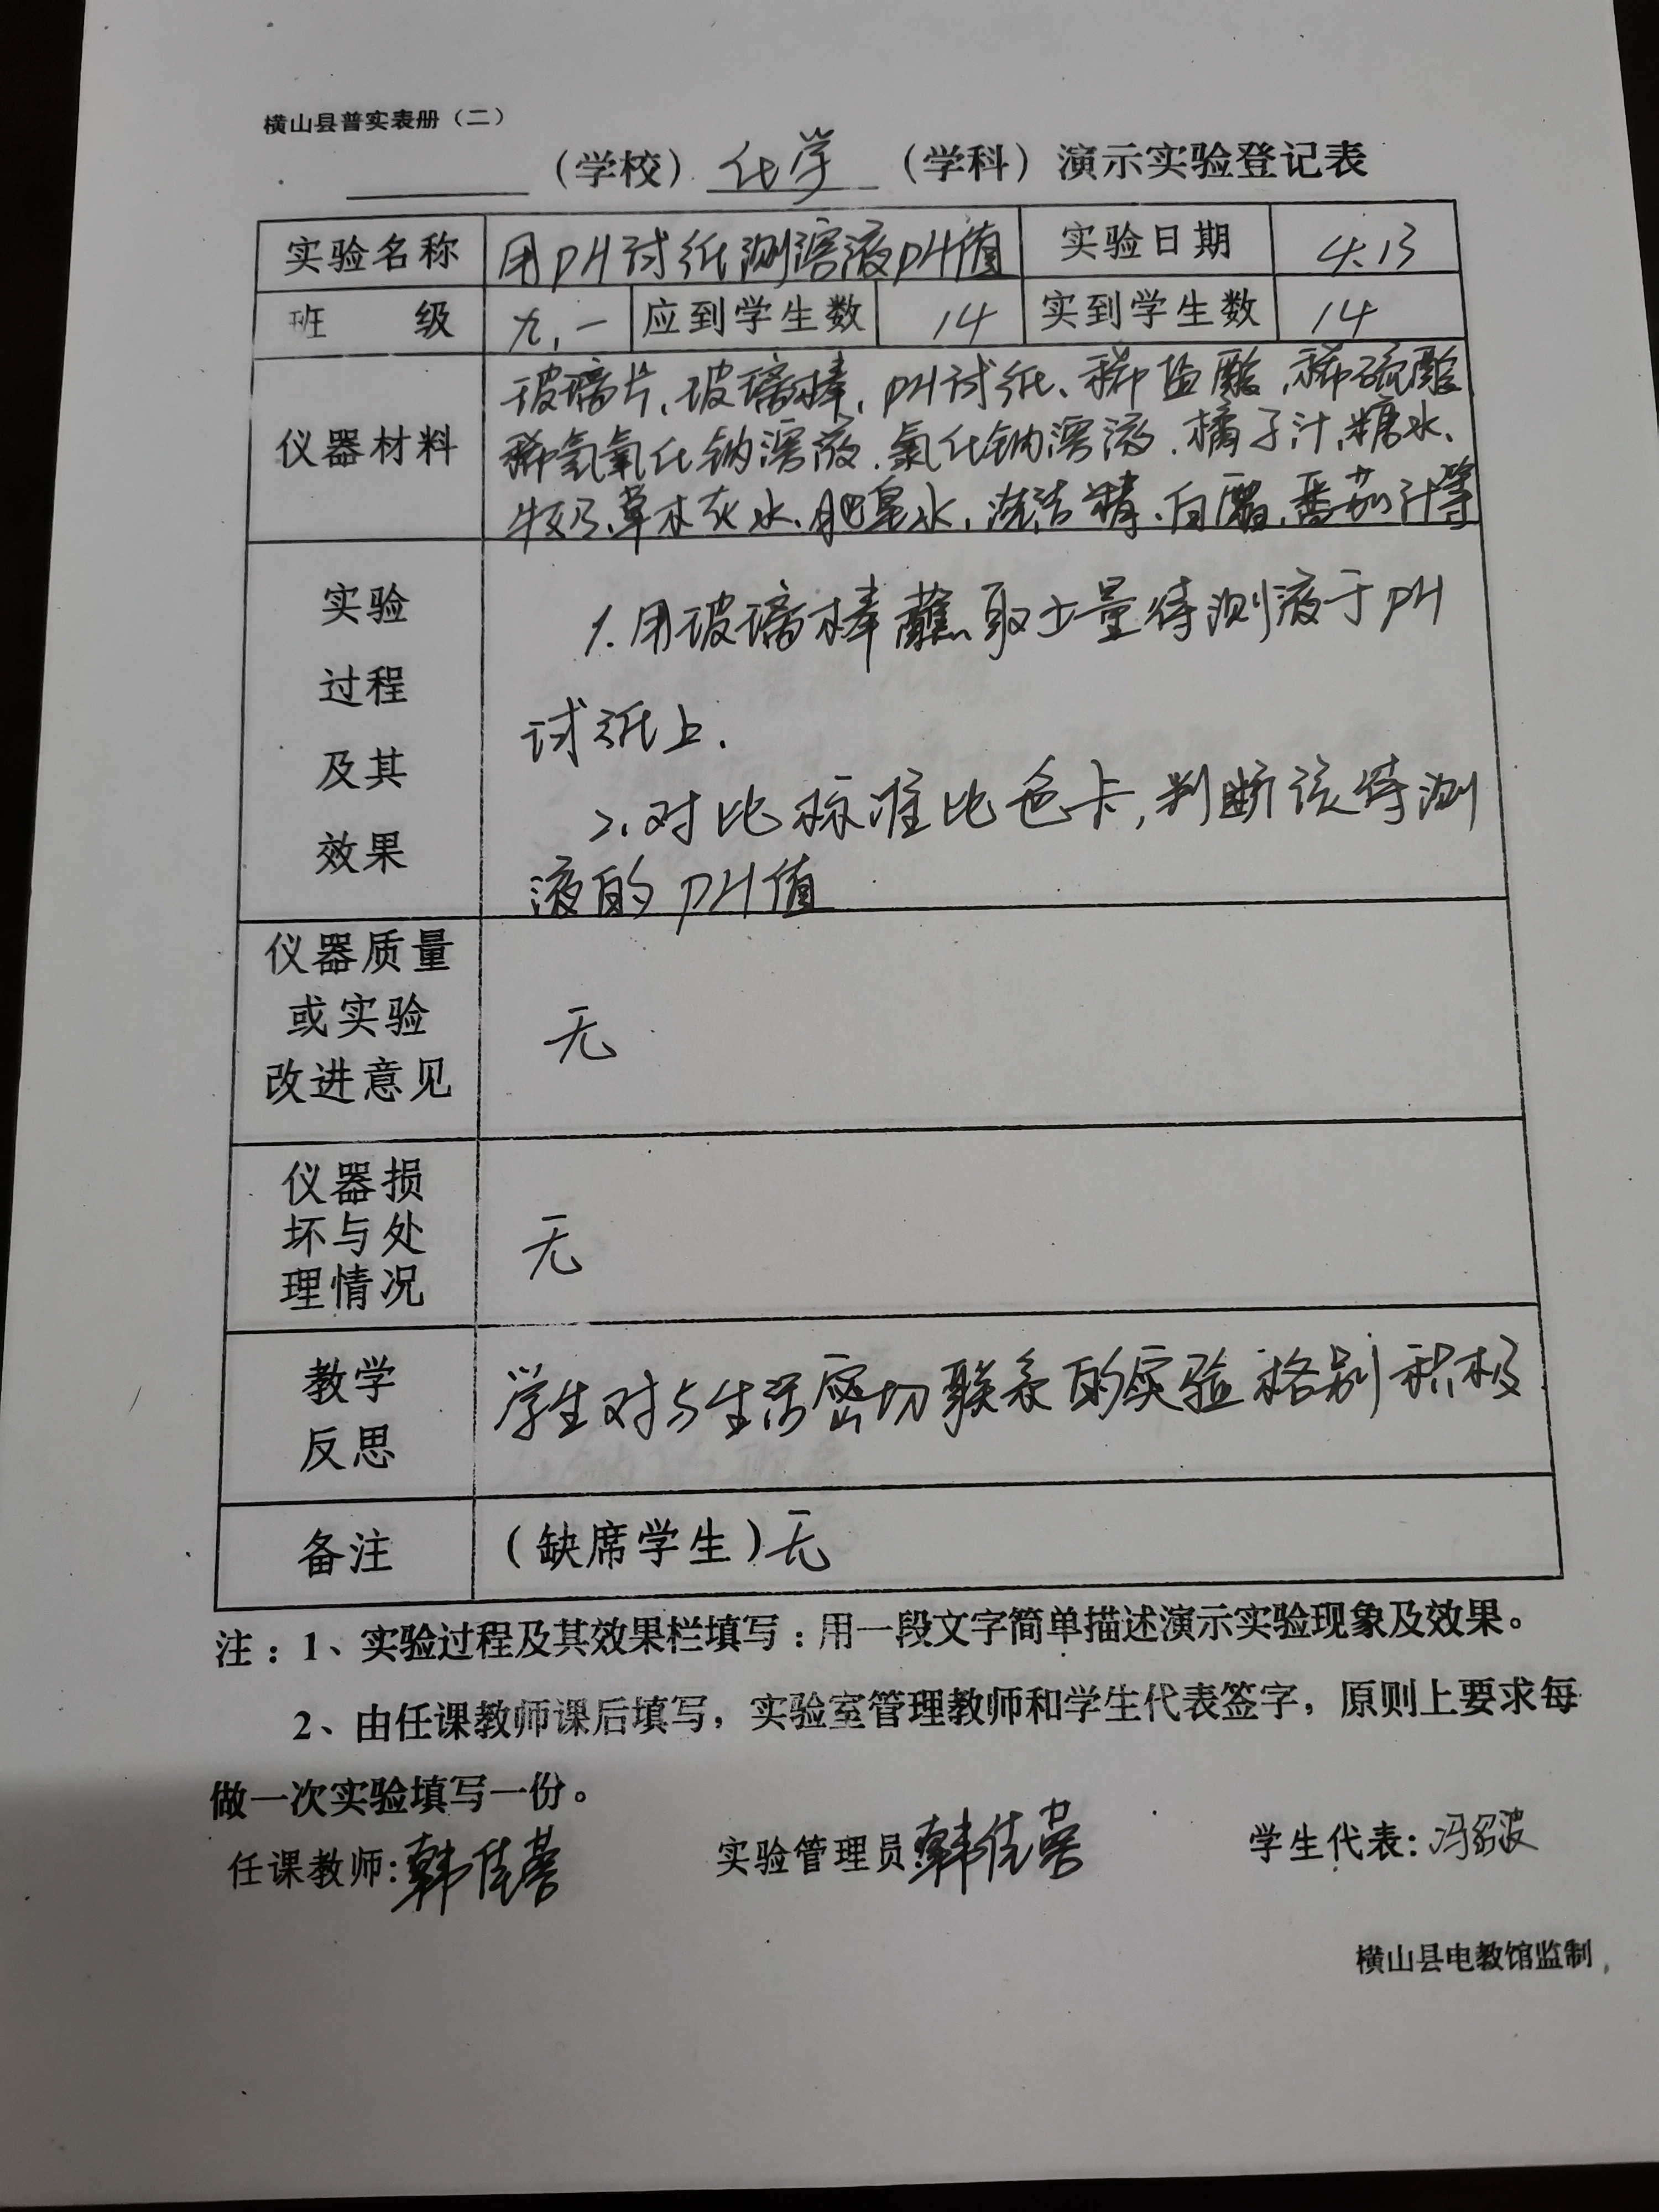 横山县普实表册（二）
（学校）化学（学科）演示实验登记表
实验名称 用pH试纸测溶液pH值 实验日期 4.13
班 级 九.一 应到学生数 14 实到学生数 14
仪器材料 玻璃片、玻璃棒、pH试纸、稀盐酸、稀硫酸
稀氢氧化钠溶液、氯化钠溶液、橘子汁、糖水、
牛奶、草木灰水、肥皂水、洗洁精、白醋、番茄汁等
实验
过程
及其
效果
1.用玻璃棒蘸取少量待测液于pH
试纸上.
2.对比标准比色卡,判断该待测
液的pH值
仪器质量
或实验
改进意见
无
仪器损
坏与处
理情况
无
教学
反思
学生对与生活密切联系的实验格别积极
备注 （缺席学生）无
注：1、实验过程及其效果栏填写：用一段文字简单描述演示实验现象及效果。
2、由任课教师课后填写，实验室管理教师和学生代表签字，原则上要求每
做一次实验填写一份。
任课教师:韩佳蓉 实验管理员:韩佳蓉 学生代表:冯波
横山县电教馆监制